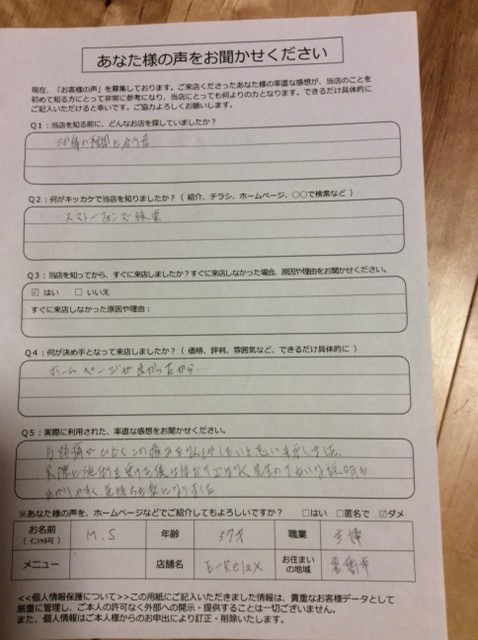 あなた様の声をお聞かせください
現在、「お客様の声」を募集しております。ご来店くださったあなた様の率直な感想が、当店のことを
初めて知る方にとって非常に参考になり、当店にとっても何よりの力となります。できるだけ具体的に
ご記入いただけると幸いです。ご協力よろしくお願いします。
Q1：当店を知る前に、どんなお店を探していましたか？
Q2：何がキッカケで当店を知りましたか？（ 紹介、チラシ、ホームページ、○○で検索など ）
スマートフォンで検索
Q3：当店を知ってから、すぐに来店しましたか？すぐに来店しなかった場合、原因や理由をお聞かせください。
☑ はい　☐ いいえ
すぐに来店しなかった原因や理由：
Q4：何が決め手となって来店しましたか？（ 価格、評判、雰囲気など、できるだけ具体的に ）
ホームページが良かったから…
Q5：実際に利用された、率直な感想をお聞かせください。
片頭痛がひどくこの痛みをなんとかしたいと思い来ました。
実際に施術を受けた後は
先生のていねいな説明も
わかりやすく気持ちも楽になりました
※あなた様の声を、ホームページなどでご紹介してもよろしいですか？　☐はい　☐匿名で　☑ダメ
お名前（イニシャル可） M.S 年齢 37才 職業 主婦
メニュー 店舗名 E-Relax お住まいの地域
<<個人情報保護について>>この用紙にご記入いただきました情報は、貴重なお客様データとして
厳重に管理し、ご本人の許可なく外部への開示・提供することは一切ございません。
また、個人情報はご本人様からのお申出により訂正・削除いたします。